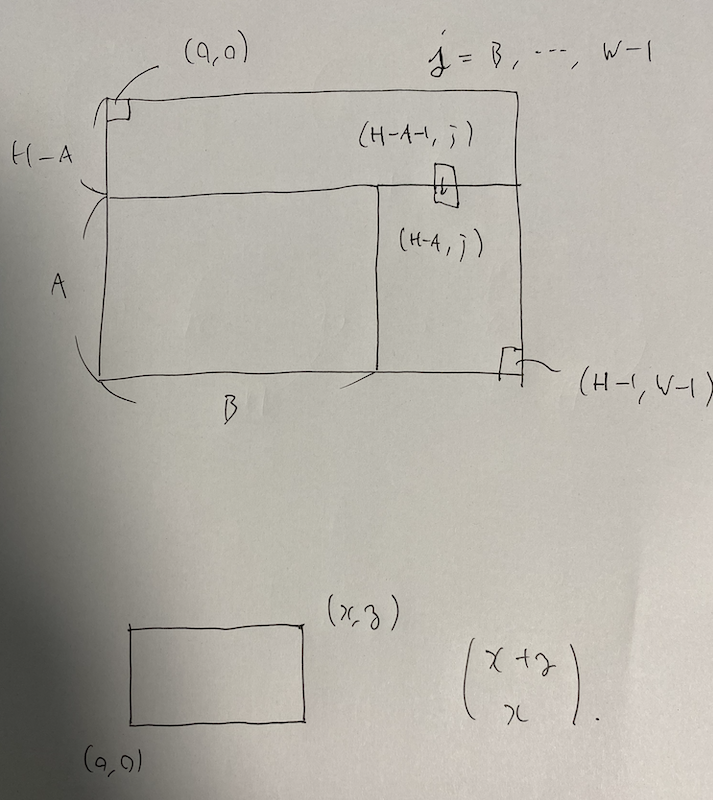 (0,0)
j = B, ..., W-1
H-A
(H-A-1, j)
(H-A, j)
A
(H-1, W-1)
B
(x,y)
(x+y
x).
(0,0)